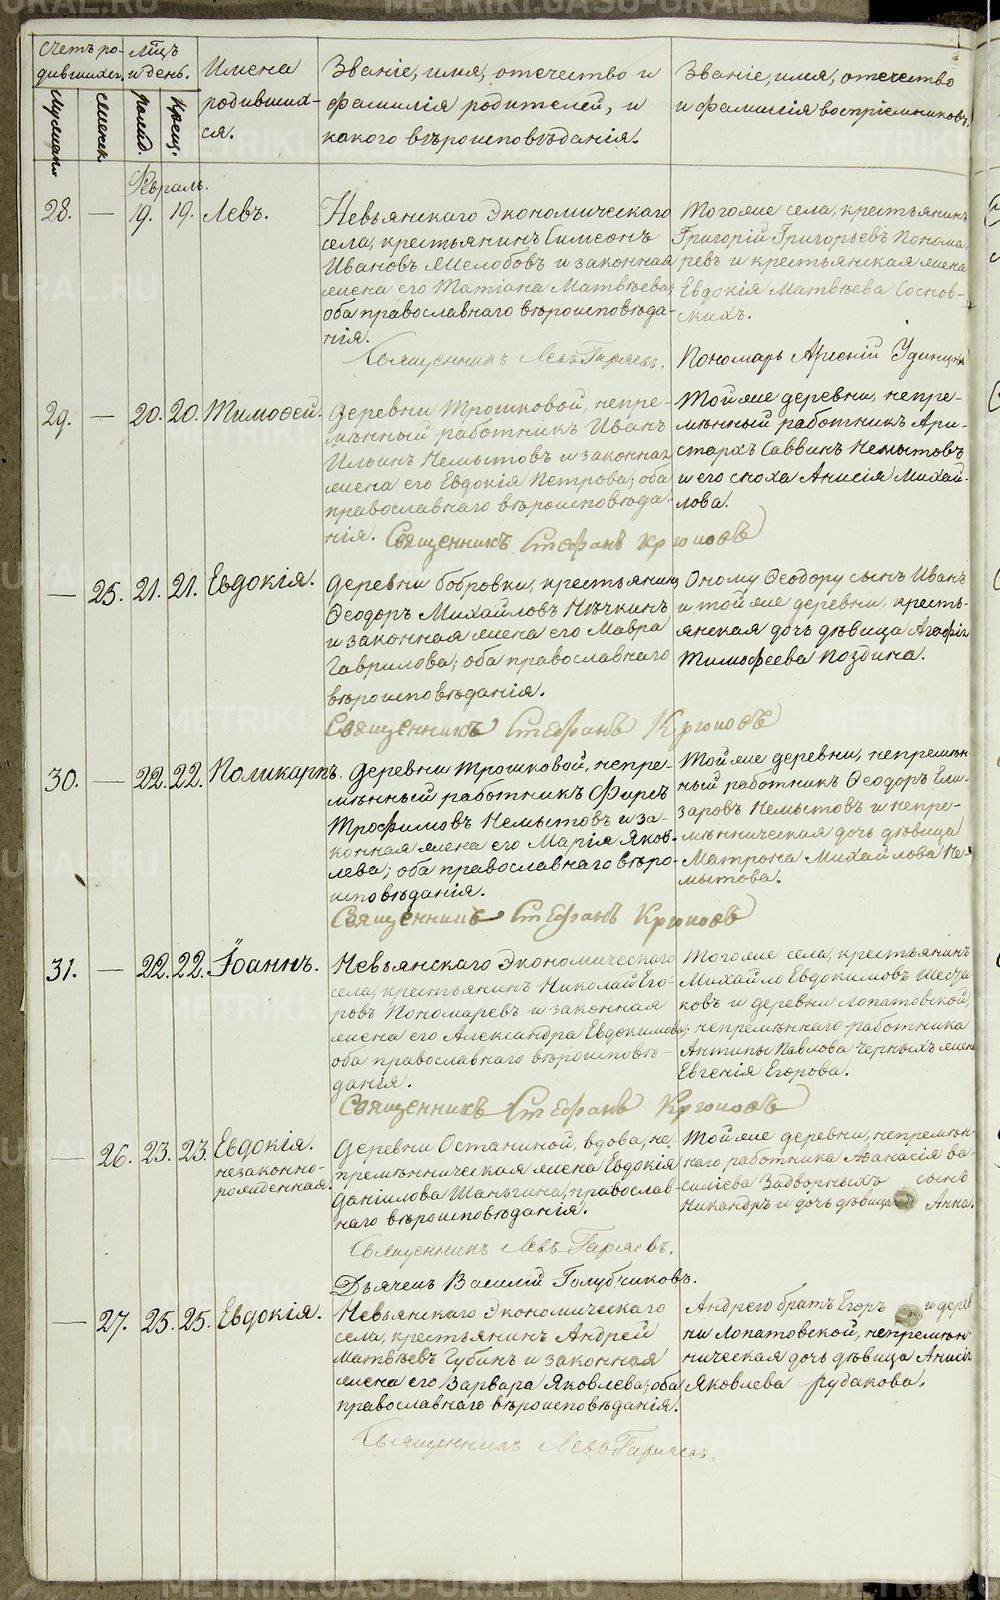 Счетъ ро-
дившихся.
Мѣсяцъ
и день.
Имена
родивших-
ся.
Званіе, имя, отечество и
фамилія родителей, и
какого вѣроисповѣданія.
Званіе, имя, отечество
и фамилія воспріемниковъ.
Мужеск.
Женск.
рожд.
крещ.
Февраль.
28. — 19. 19. Левъ.
Невьянскаго Экономическаго
села, крестьянинъ Симеонъ
Ивановъ Желобовъ и законная
жена его Татіана Матвѣева,
оба православнаго вѣроисповѣда-
нія.
Священникъ Левъ Гаряевъ.
Тогоже села, крестьянинъ
Григорій Григорьевъ Понома-
ревъ и крестьянская жена
Евдокія Матвѣева Соснов-
скихъ.
Пономарь Арсеній Удинцовъ
29. — 20. 20. Тимоѳей.
Деревни Трошковой, непре-
мѣнный работникъ Иванъ
Ильинъ Немытовъ и законная
жена его Евдокія Петрова; оба
православнаго вѣроисповѣда-
нія. Священникъ Стефанъ
Тойже деревни, непре-
мѣнный работникъ Ари-
стархъ Саввинъ Немытовъ
и его сноха Анисія Михай-
лова.
— 25. 21. 21. Евдокія.
Деревни Бобровки, крестьянинъ
Ѳеодоръ Михайловъ Нѣчкинъ
и законная жена его Мавра
Гаврилова; оба православнаго
вѣроисповѣданія.
Священникъ Стефанъ
Оному Ѳеодору сынъ Иванъ
и тойже деревни, кресть-
янская дочь дѣвица Агафія
Тимофеева Поздина.
30. — 22. 22. Поликарпъ.
Деревни Трошковой, непре-
мѣнный работникъ Фирсъ
Трофимовъ Немытовъ и за-
конная жена его Марія Яков-
лева; оба православнаго вѣро-
исповѣданія.
Священникъ Стефанъ
Тойже деревни, непремѣн-
ный работникъ Ѳеодоръ Ели-
заровъ Немытовъ и непре-
мѣнническая дочь дѣвица
Матрона Михайлова Не-
мытова.
31. — 22. 22. Іоаннъ.
Невьянскаго Экономическаго
села, крестьянинъ Николай Его-
ровъ Пономаревъ и законная
жена его Александра Евдокимова;
оба православнаго вѣроисповѣ-
данія.
Священникъ Стефанъ
Тогоже села, крестьянинъ
Михайло Евдокимовъ
ковъ и деревни Лопатовской,
непремѣннаго работника
Антипы Павлова Черныхъ жена
Евгенія Егорова.
— 26. 23. 23. Евдокія.
незаконно-
рожденная.
Деревни Останиной, вдова, не-
премѣнническая жена Евдокія
Даніилова Шаньгина, православ-
наго вѣроисповѣданія.
Священникъ Левъ Гаряевъ.
Дьячекъ Василій Голубчиковъ.
Тойже деревни, непремѣн-
наго работника Аѳанасія Ва-
силіева Задворныхъ сынъ
Никандръ и дочь дѣвица Анна.
— 27. 25. 25. Евдокія.
Невьянскаго Экономическаго
села, крестьянинъ Андрей
Матвѣевъ Губинъ и законная
жена его Варвара Яковлева; оба
православнаго вѣроисповѣданія.
Священникъ Левъ Гаряевъ.
Андрею братъ Егоръ и дерев-
ни Лопатовской, непремѣн-
ническая дочь дѣвица Анисія
Яковлева Рудакова.
METRIKI.GASU-URAL.RU